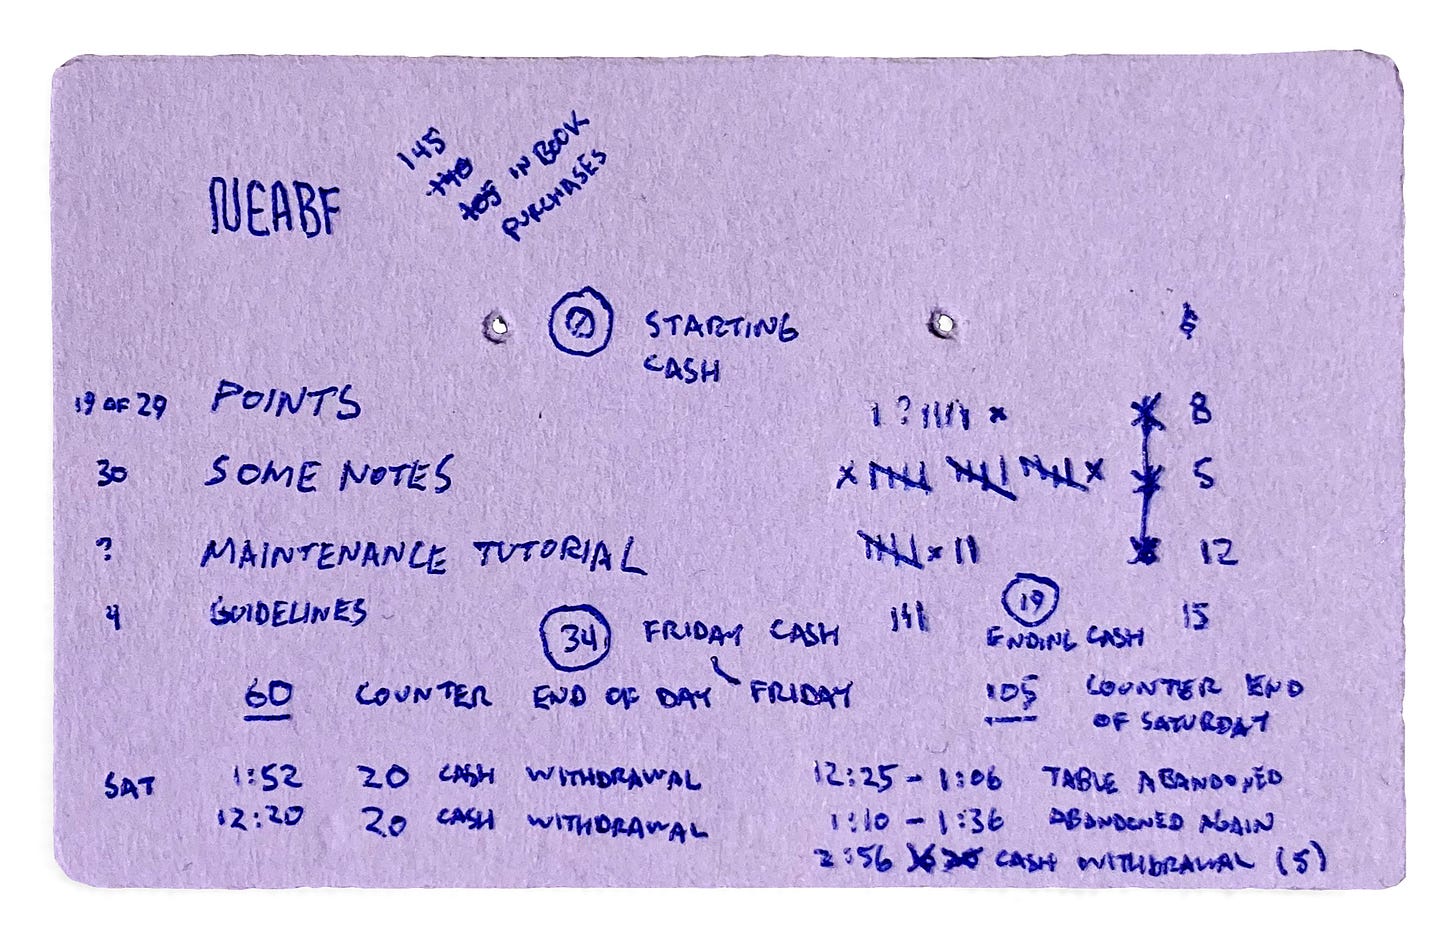 NEABF
145
140
105 IN BOOK
PURCHASES
0 STARTING
CASH
$
19 OF 29 POINTS 8
30 SOME NOTES 5
? MAINTENANCE TUTORIAL 12
4 GUIDELINES 15
34 FRIDAY CASH
19
ENDING CASH
60 COUNTER END OF DAY FRIDAY
105 COUNTER END
OF SATURDAY
SAT 1:52 20 CASH WITHDRAWAL
12:20 20 CASH WITHDRAWAL
12:25 - 1:06 TABLE ABANDONED
1:10 - 1:36 ABANDONED AGAIN
2:56 CASH WITHDRAWAL (5)